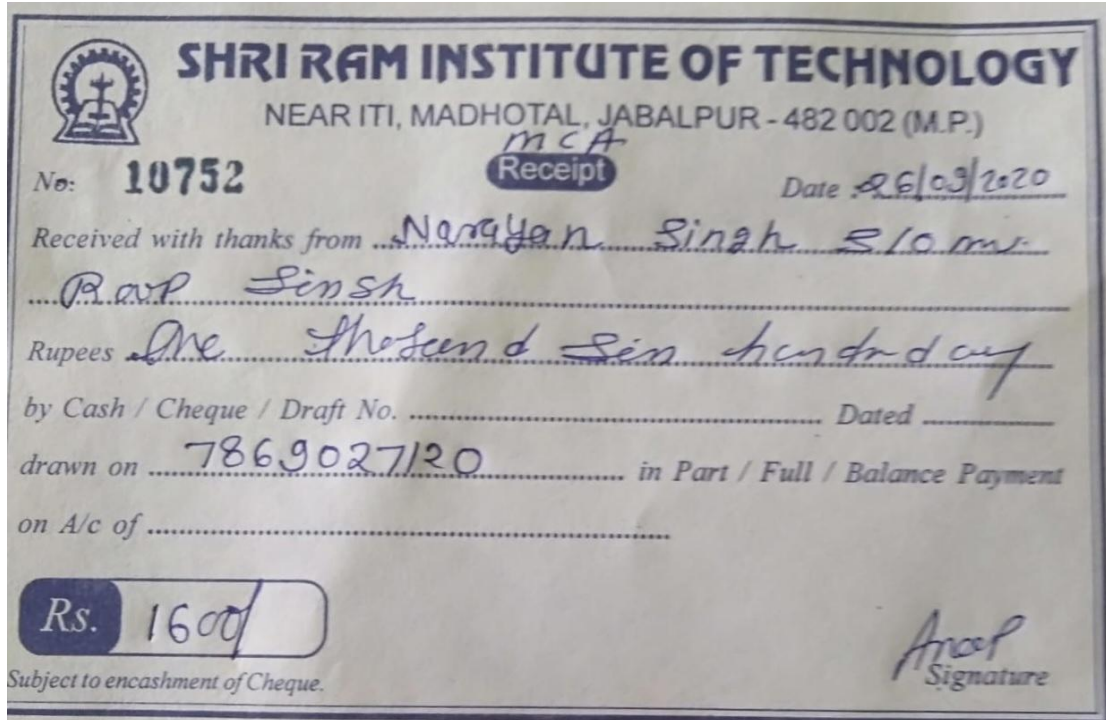 SHRI RAM INSTITUTE OF TECHNOLOGY
NEAR ITI, MADHOTAL, JABALPUR - 482 002 (M.P.)
MCA
No: 10752 Receipt Date 26/09/2020
Received with thanks from Narayan Singh S/o mr.
Roop Singh
Rupees One thosand Six hundrd only
by Cash / Cheque / Draft No. Dated
drawn on 7869027120 in Part / Full / Balance Payment
on A/c of
Rs. 1600/
Subject to encashment of Cheque.
Signature